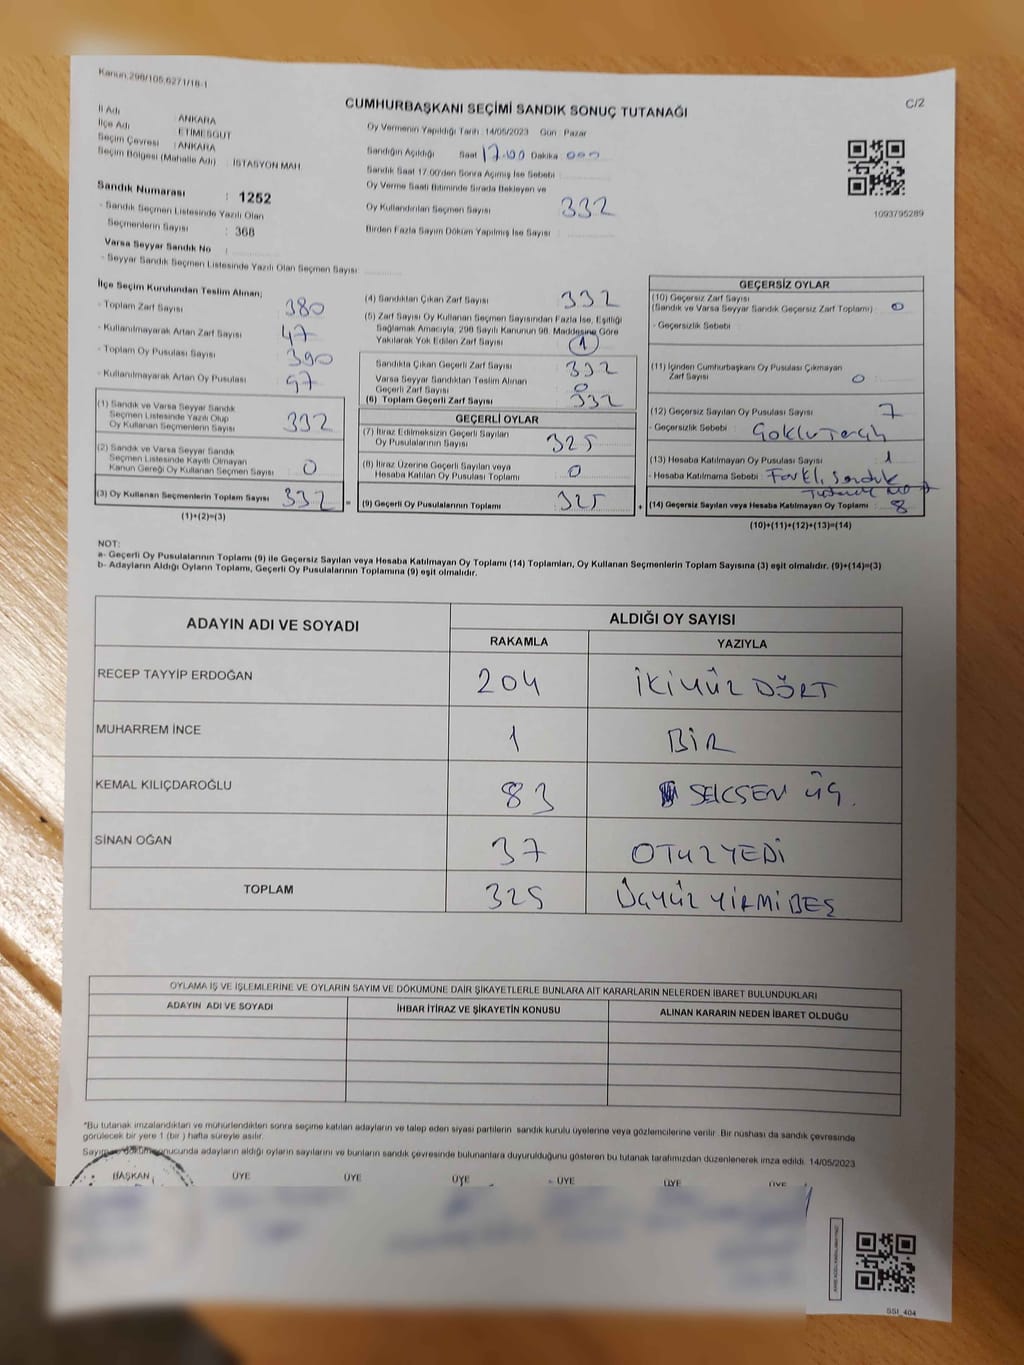 Kanun:298/105,6271/18-1
C/2
CUMHURBAŞKANI SEÇİMİ SANDIK SONUÇ TUTANAĞI
İl Adı : ANKARA
İlçe Adı : ETİMESGUT
Seçim Çevresi : ANKARA
Seçim Bölgesi (Mahalle Adı) : İSTASYON MAH.
Sandık Numarası : 1252
- Sandık Seçmen Listesinde Yazılı Olan
Seçmenlerin Sayısı : 368
Varsa Seyyar Sandık No :
- Seyyar Sandık Seçmen Listesinde Yazılı Olan Seçmen Sayısı:
Oy Vermenin Yapıldığı Tarih :14/05/2023 Gün : Pazar
Sandığın Açıldığı Saat 17:00 Dakika 000
Sandık Saat 17.00'den Sonra Açılmış İse Sebebi :
Oy Verme Saati Bitiminde Sırada Bekleyen ve
Oy Kullandırılan Seçmen Sayısı : 332
Birden Fazla Sayım Döküm Yapılmış İse Sayısı :
1093795289
İlçe Seçim Kurulundan Teslim Alınan;
- Toplam Zarf Sayısı : 380
- Kullanılmayarak Artan Zarf Sayısı : 47
- Toplam Oy Pusulası Sayısı : 390
- Kullanılmayarak Artan Oy Pusulası : 97
(1) Sandık ve Varsa Seyyar Sandık
Seçmen Listesinde Yazılı Olup
Oy Kullanan Seçmenlerin Sayısı : 332
(2) Sandık ve Varsa Seyyar Sandık
Seçmen Listesinde Kayıtlı Olmayan
Kanun Gereği Oy Kullanan Seçmen Sayısı : 0
(3) Oy Kullanan Seçmenlerin Toplam Sayısı : 332 =
(1)+(2)=(3)
(4) Sandıktan Çıkan Zarf Sayısı : 332
(5) Zarf Sayısı Oy Kullanan Seçmen Sayısından Fazla İse, Eşitliği
Sağlamak Amacıyla, 298 Sayılı Kanunun 98. Maddesine Göre
Yakılarak Yok Edilen Zarf Sayısı : 1
Sandıkta Çıkan Geçerli Zarf Sayısı : 332
Varsa Seyyar Sandıktan Teslim Alınan
Geçerli Zarf Sayısı : 0
(6) Toplam Geçerli Zarf Sayısı : 332
GEÇERLİ OYLAR
(7) İtiraz Edilmeksizin Geçerli Sayılan
Oy Pusulalarının Sayısı : 325
(8) İtiraz Üzerine Geçerli Sayılan veya
Hesaba Katılan Oy Pusulası Toplamı : 0
(9) Geçerli Oy Pusulalarının Toplamı : 325 +
GEÇERSİZ OYLAR
(10) Geçersiz Zarf Sayısı
(Sandık ve Varsa Seyyar Sandık Geçersiz Zarf Toplamı) : 0
- Geçersizlik Sebebi :
(11) İçinden Cumhurbaşkanı Oy Pusulası Çıkmayan
Zarf Sayısı : 0
(12) Geçersiz Sayılan Oy Pusulası Sayısı : 7
- Geçersizlik Sebebi : Çoklu Tercih
(13) Hesaba Katılmayan Oy Pusulası Sayısı : 1
- Hesaba Katılmama Sebebi : Farklı Sandık
(14) Geçersiz Sayılan veya Hesaba Katılmayan Oy Toplamı : 8
(10)+(11)+(12)+(13)=(14)
NOT:
a- Geçerli Oy Pusulalarının Toplamı (9) ile Geçersiz Sayılan veya Hesaba Katılmayan Oy Toplamı (14) Toplamları, Oy Kullanan Seçmenlerin Toplam Sayısına (3) eşit olmalıdır. (9)+(14)=(3)
b- Adayların Aldığı Oyların Toplamı, Geçerli Oy Pusulalarının Toplamına (9) eşit olmalıdır.
ADAYIN ADI VE SOYADI ALDIĞI OY SAYISI
RAKAMLA YAZIYLA
RECEP TAYYİP ERDOĞAN 204 İKİYÜZ DÖRT
MUHARREM İNCE 1 BİR
KEMAL KILIÇDAROĞLU 83 SEKSEN ÜÇ.
SİNAN OĞAN 37 OTUZYEDİ
TOPLAM 325 ÜÇYÜZ YİRMİBEŞ
OYLAMA İŞ VE İŞLEMLERİNE VE OYLARIN SAYIM VE DÖKÜMÜNE DAİR ŞİKAYETLERLE BUNLARA AİT KARARLARIN NELERDEN İBARET BULUNDUKLARI
ADAYIN ADI VE SOYADI İHBAR İTİRAZ VE ŞİKAYETİN KONUSU ALINAN KARARIN NEDEN İBARET OLDUĞU
*Bu tutanak imzalandıktan ve mühürlendikten sonra seçime katılan adayların ve talep eden siyasi partilerin sandık kurulu üyelerine veya gözlemcilerine verilir. Bir nüshası da sandık çevresinde
görülecek bir yere 1 (bir ) hafta süreyle asılır.
Sayım ve dökümü sonucunda adayların aldığı oyların sayılarını ve bunların sandık çevresinde bulunanlara duyurulduğunu gösteren bu tutanak tarafımızdan düzenlenerek imza edildi. 14/05/2023
BAŞKAN ÜYE ÜYE ÜYE ÜYE ÜYE ÜYE
SSI_404